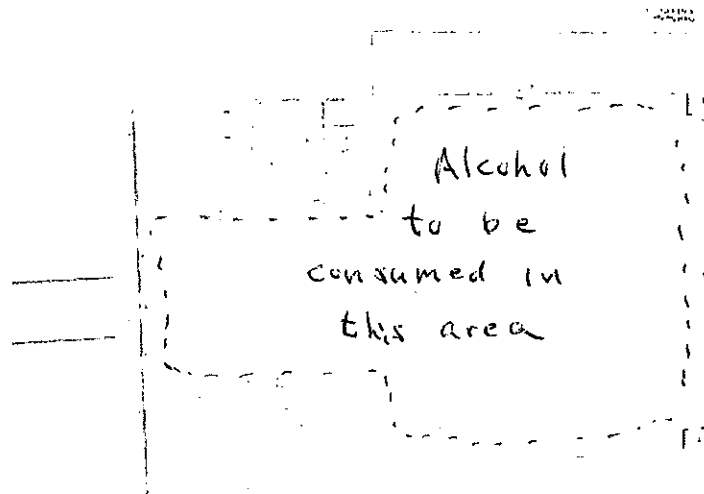 Alcohol
to be
consumed in
this area